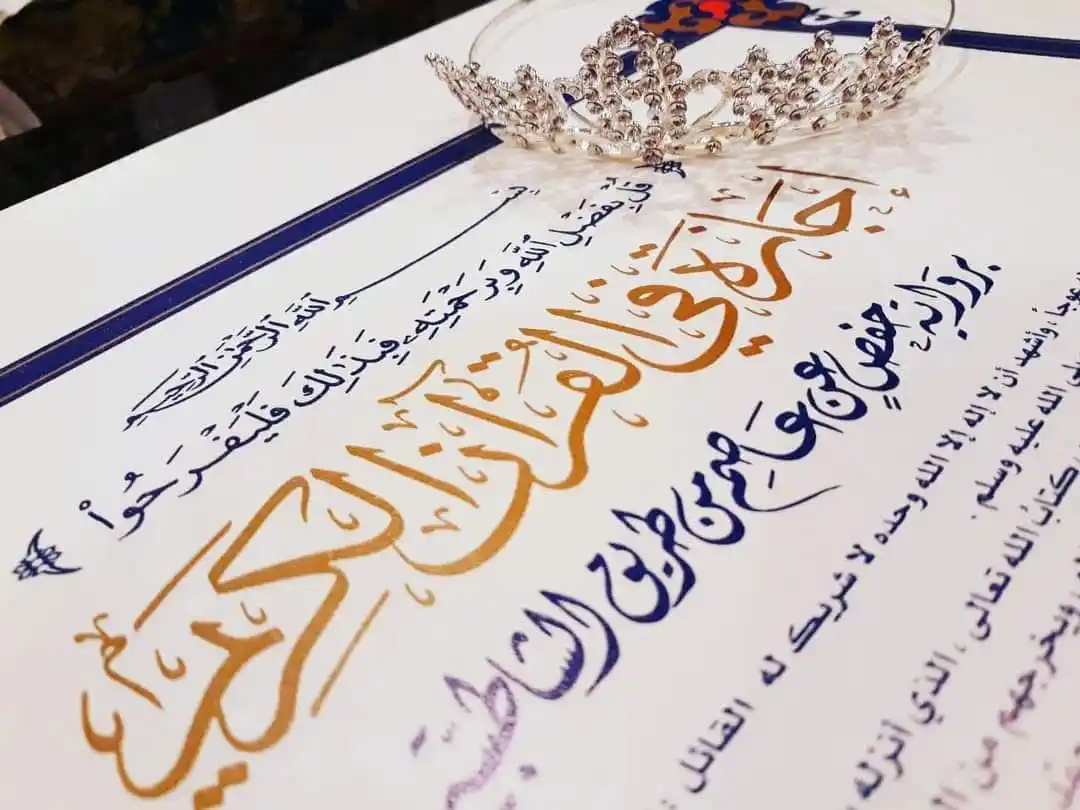 بِسْمِ اللَّهِ الرَّحْمَنِ الرَّحِيمِ
قُلْ بِفَضْلِ اللَّهِ وَبِرَحْمَتِهِ فَبِذَلِكَ فَلْيَفْرَحُوا
إجازة في القرآن الكريم
برواية حفص عن عاصم من طريق الشاطبية
عوجا، وأشهد أن لا إله إلا الله وحده لا شريك له القائل
الله عليه وسلم.
كتاب الله تعالى، الذي أنزله
ويخرجهم من